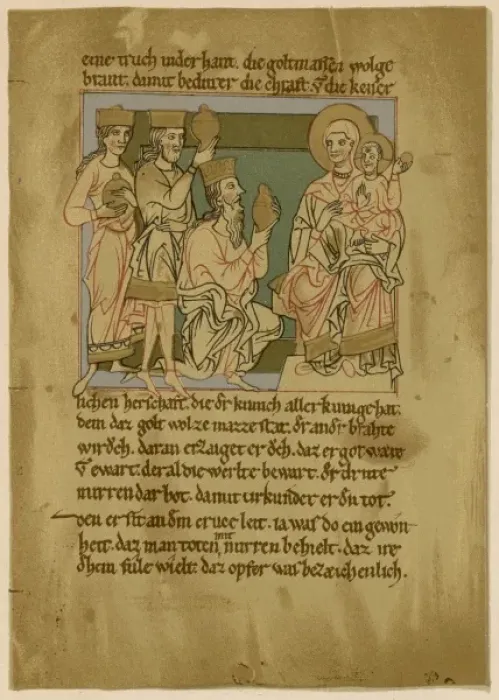 eine truch inder hant. die goltmassen wolge
brant. damit bediutet er die chraft. v̄ die keiser
lichen herschaft. die dr kunich aller kunige hat.
dem daz golt wol ze mazze stat. dr andr brahte
wirǒch. daran erzaiget er ǒch. daz er got wære
v̄ ewart. der al die werlte bewart. dr dritte
mirren dar bot. damit urkundet er dn tot.
den er sit an dm cruce leit. ia was do ein gewon
heit. daz man toten mit mirren behielt. daz ire
dhein fule wielt. daz opfer was bezæichenlich.